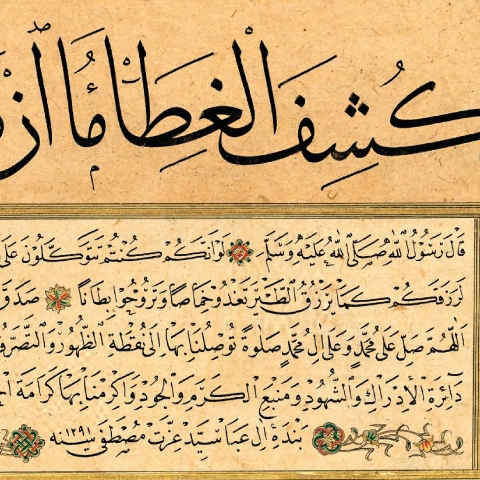 كُشِفَ الْغِطَاءُ مَا ازْ
قَالَ رَسُولُ اللّٰهِ صَلَّى اللّٰهُ عَلَيْهِ وَسَلَّمَ لَوْ اَنَّكُمْ كُنْتُمْ تَوَكَّلُونَ عَلَى
لَرَزَقَكُمْ كَمَا يَرْزُقُ الطَّيْرَ تَغْدُو خِمَاصًا وَتَرُوحُ بِطَانًا صَدَقَ
اَللّٰهُمَّ صَلِّ عَلَى مُحَمَّدٍ وَعَلَى اٰلِ مُحَمَّدٍ صَلٰوةً تُوصِلُنَا بِهَا اِلَى نُقْطَةِ الظُّهُورِ وَالتَّصَرُّفِ
دَائِرَةِ الْاِدْرَاكِ وَالشُّهُودِ وَمَنْبَعِ الْكَرَمِ وَالْجُودِ وَاَكْرِمْنَا بِهَا كَرَامَةَ
بَنْدَهِٔ اٰلِ عَبَا سَيِّدْ عِزَّتْ مُصْطَفٰى سنه ١٢٩١